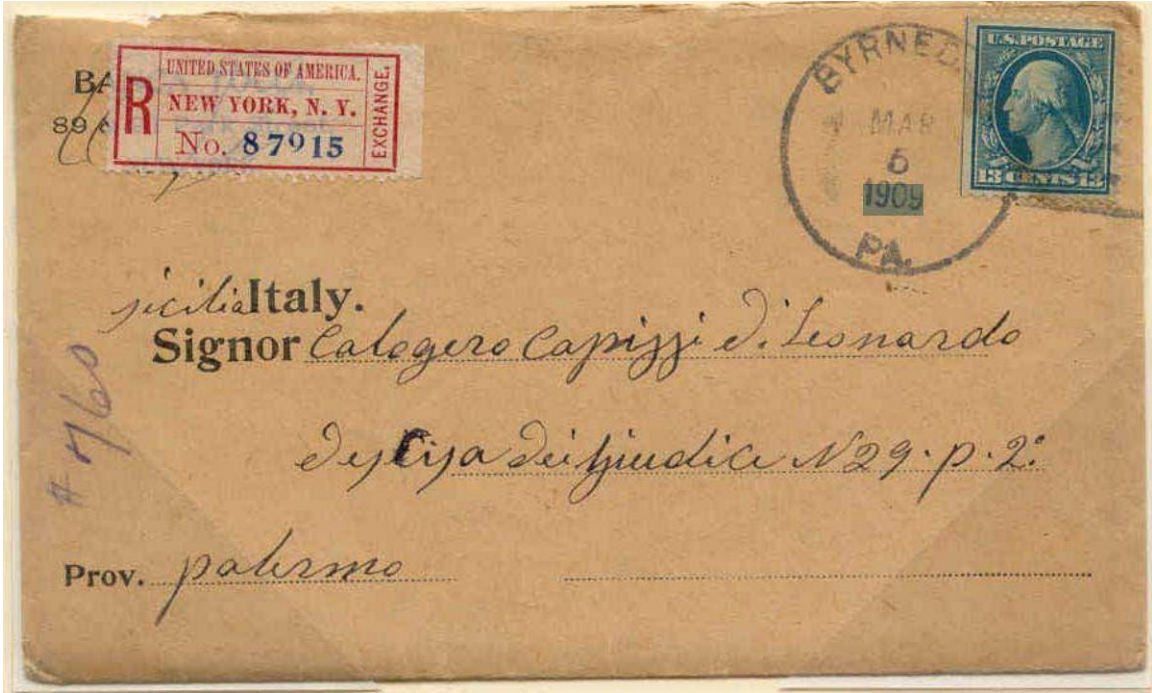 BA
89
R
UNITED STATES OF AMERICA.
NEW YORK, N. Y.
No. 87915
EXCHANGE.
BYRNED
MAR
6
1909
PA.
U.S. POSTAGE
13 CENTS 13
sicilia Italy.
Signor Calogero Capizzi di Leonardo
dei Giudici N 29. p. 2º
Prov. palermo
# 760